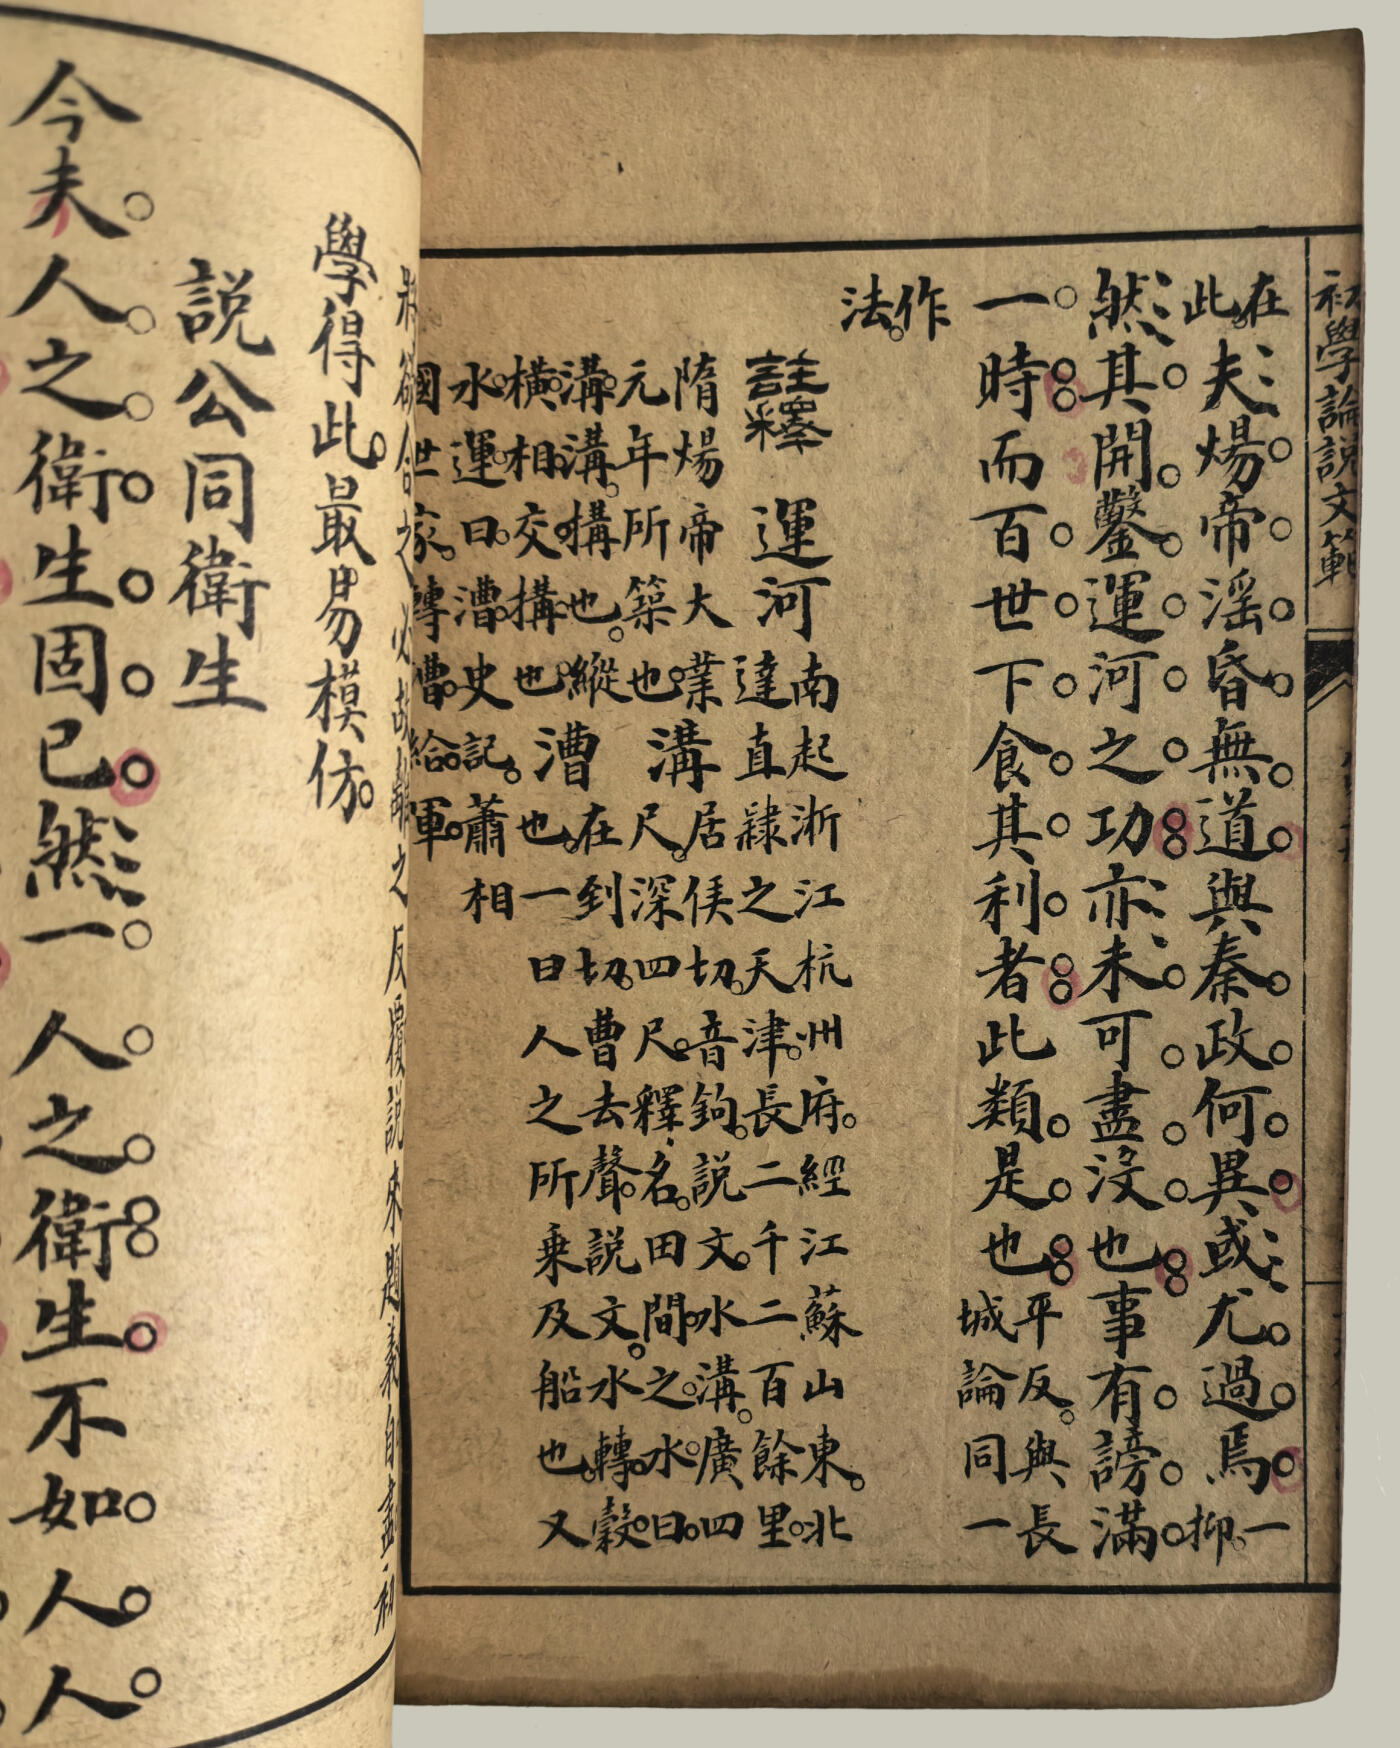 初學論說文範
在
此。夫煬帝淫昏無道與秦政何異或尤過焉一
抑。
然其開鑿運河之功亦未可盡沒也事有謗滿
一時而百世下食其利者此類是也平反。與長
城論同一
作
法。
註釋 運河 南起浙江杭州府。經江蘇山東。北
達直隸之天津。長二千二百餘里。
隋煬帝大業
元年所築也。
溝 居侯切。音鉤。說文。水溝。廣四
尺。深四尺。釋名。田間之水。曰。
溝。溝。搆也。縱
橫相交搆也。
漕 在到切。曹去聲。說文。水轉穀
也。一曰人之所乘及船也。又
水運曰漕。史記。蕭相
國世家。轉漕給軍。
欲合之必故離之反覆說來題義自盡初
學得此。最易模仿。
說公同衛生
今夫人之衛生固已然一人之衛生不如人人